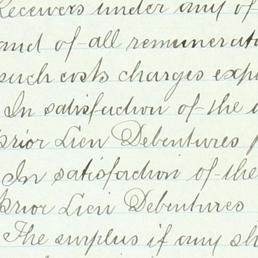 Receivers under any of
and of all remunerat
such costs charges exp
In satisfaction of the
Prior Lien Debentures
In satisfaction of the
Prior Lien Debentures
The surplus if any sh